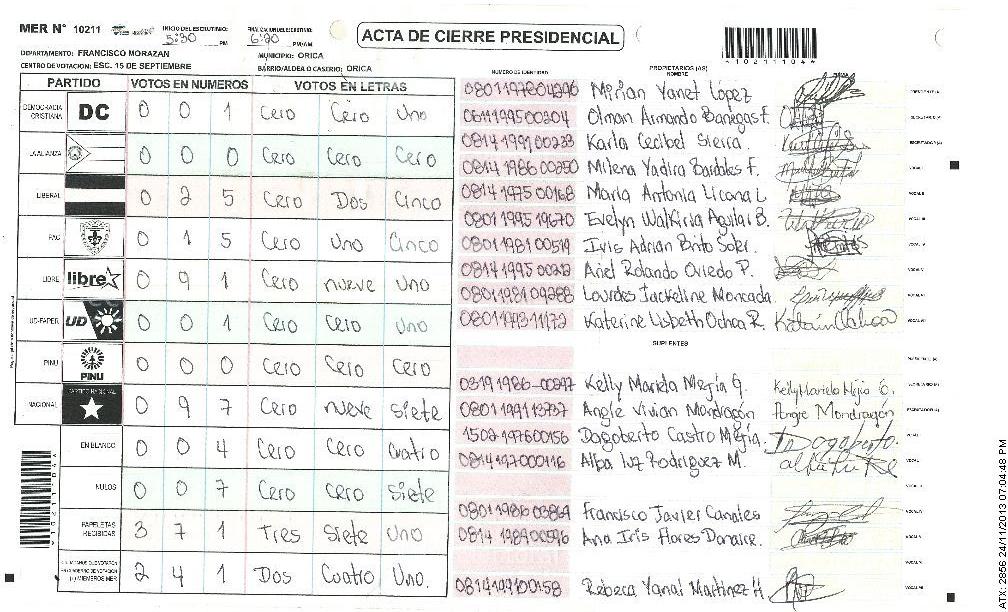 MER N° 10211 INICIO DEL ESCRUTINIO: 5:30 PM FINALIZACION DEL ESCRUTINIO: 6:20 PM/AM
ACTA DE CIERRE PRESIDENCIAL
1 0 2 1 1 1 0 4 4
DEPARTAMENTO: FRANCISCO MORAZAN MUNICIPIO: ORICA
CENTRO DE VOTACION: ESC. 15 DE SEPTIEMBRE BARRIO/ALDEA O CASERIO: ORICA
PARTIDO VOTOS EN NUMEROS VOTOS EN LETRAS
DEMOCRACIA CRISTIANA DC 0 0 1 Cero Cero Uno
LA ALIANZA 0 0 0 Cero Cero Cero
LIBERAL 0 2 5 Cero Dos Cinco
PAC 0 1 5 Cero Uno Cinco
LIBRE libre 0 9 1 Cero nueve uno
UD-FAPER UD 0 0 1 Cero Cero Uno
PINU PINU 0 0 0 Cero Cero Cero
NACIONAL PARTIDO NACIONAL 0 9 7 Cero nueve siete
EN BLANCO 0 0 4 Cero Cero Cuatro
NULOS 0 0 7 Cero Cero Siete
PAPELETAS RECIBIDAS 3 7 1 Tres Siete Uno
2 4 1 Dos Cuatro Uno.
NUMERO DE IDENTIDAD PROPIETARIOS (AS) NOMBRE
Mirian Yanet López PRESIDENTE (A)
0611199500204 Olman Armando Banegas F. SECRETARIO (A)
Karla Cecibel Sierra. ESCRUTADOR (A)
0814 1986 00250 Milena Yadira Bardales F. VOCAL I
0814 1975 00168 Maria Antonia Licona L VOCAL II
0801 1995 19670 Evelyn Walkiria Aguilar B. VOCAL III
0801 1981 00519 Iris Adrian Pinto Soler. VOCAL IV
0814 1995 00212 Ariel Rolando Oviedo P. VOCAL V
0801 1981 09288 Lourdes Jackeline Moncada VOCAL VI
0801 1993 11172 Katerine Lisbeth Ochoa R. Katerin Ochoa VOCAL VII
SUPLENTES
PRESIDENTE (A)
0319 1986-00297 Kelly Mariela Mejía G. Kelly Mariela Mejia G. SECRETARIO (A)
0801199113737 Angie Vivian Mondragón Angie Mondragon ESCRUTADOR (A)
1502-197600156 Dagoberto Castro Mejía. Dagoberto. VOCAL I
0814197000116 Alba luz Rodriguez M. VOCAL II
VOCAL III
0801 1986 03869 Francisco Javier Canales VOCAL IV
0814 1989 00596 Ana Iris Flores Donaire. VOCAL V
VOCAL VI
0814199100158 Rebeca Yanal Martinez H. VOCAL VII
ATX-2956 24/11/2013 07:04:48 PM